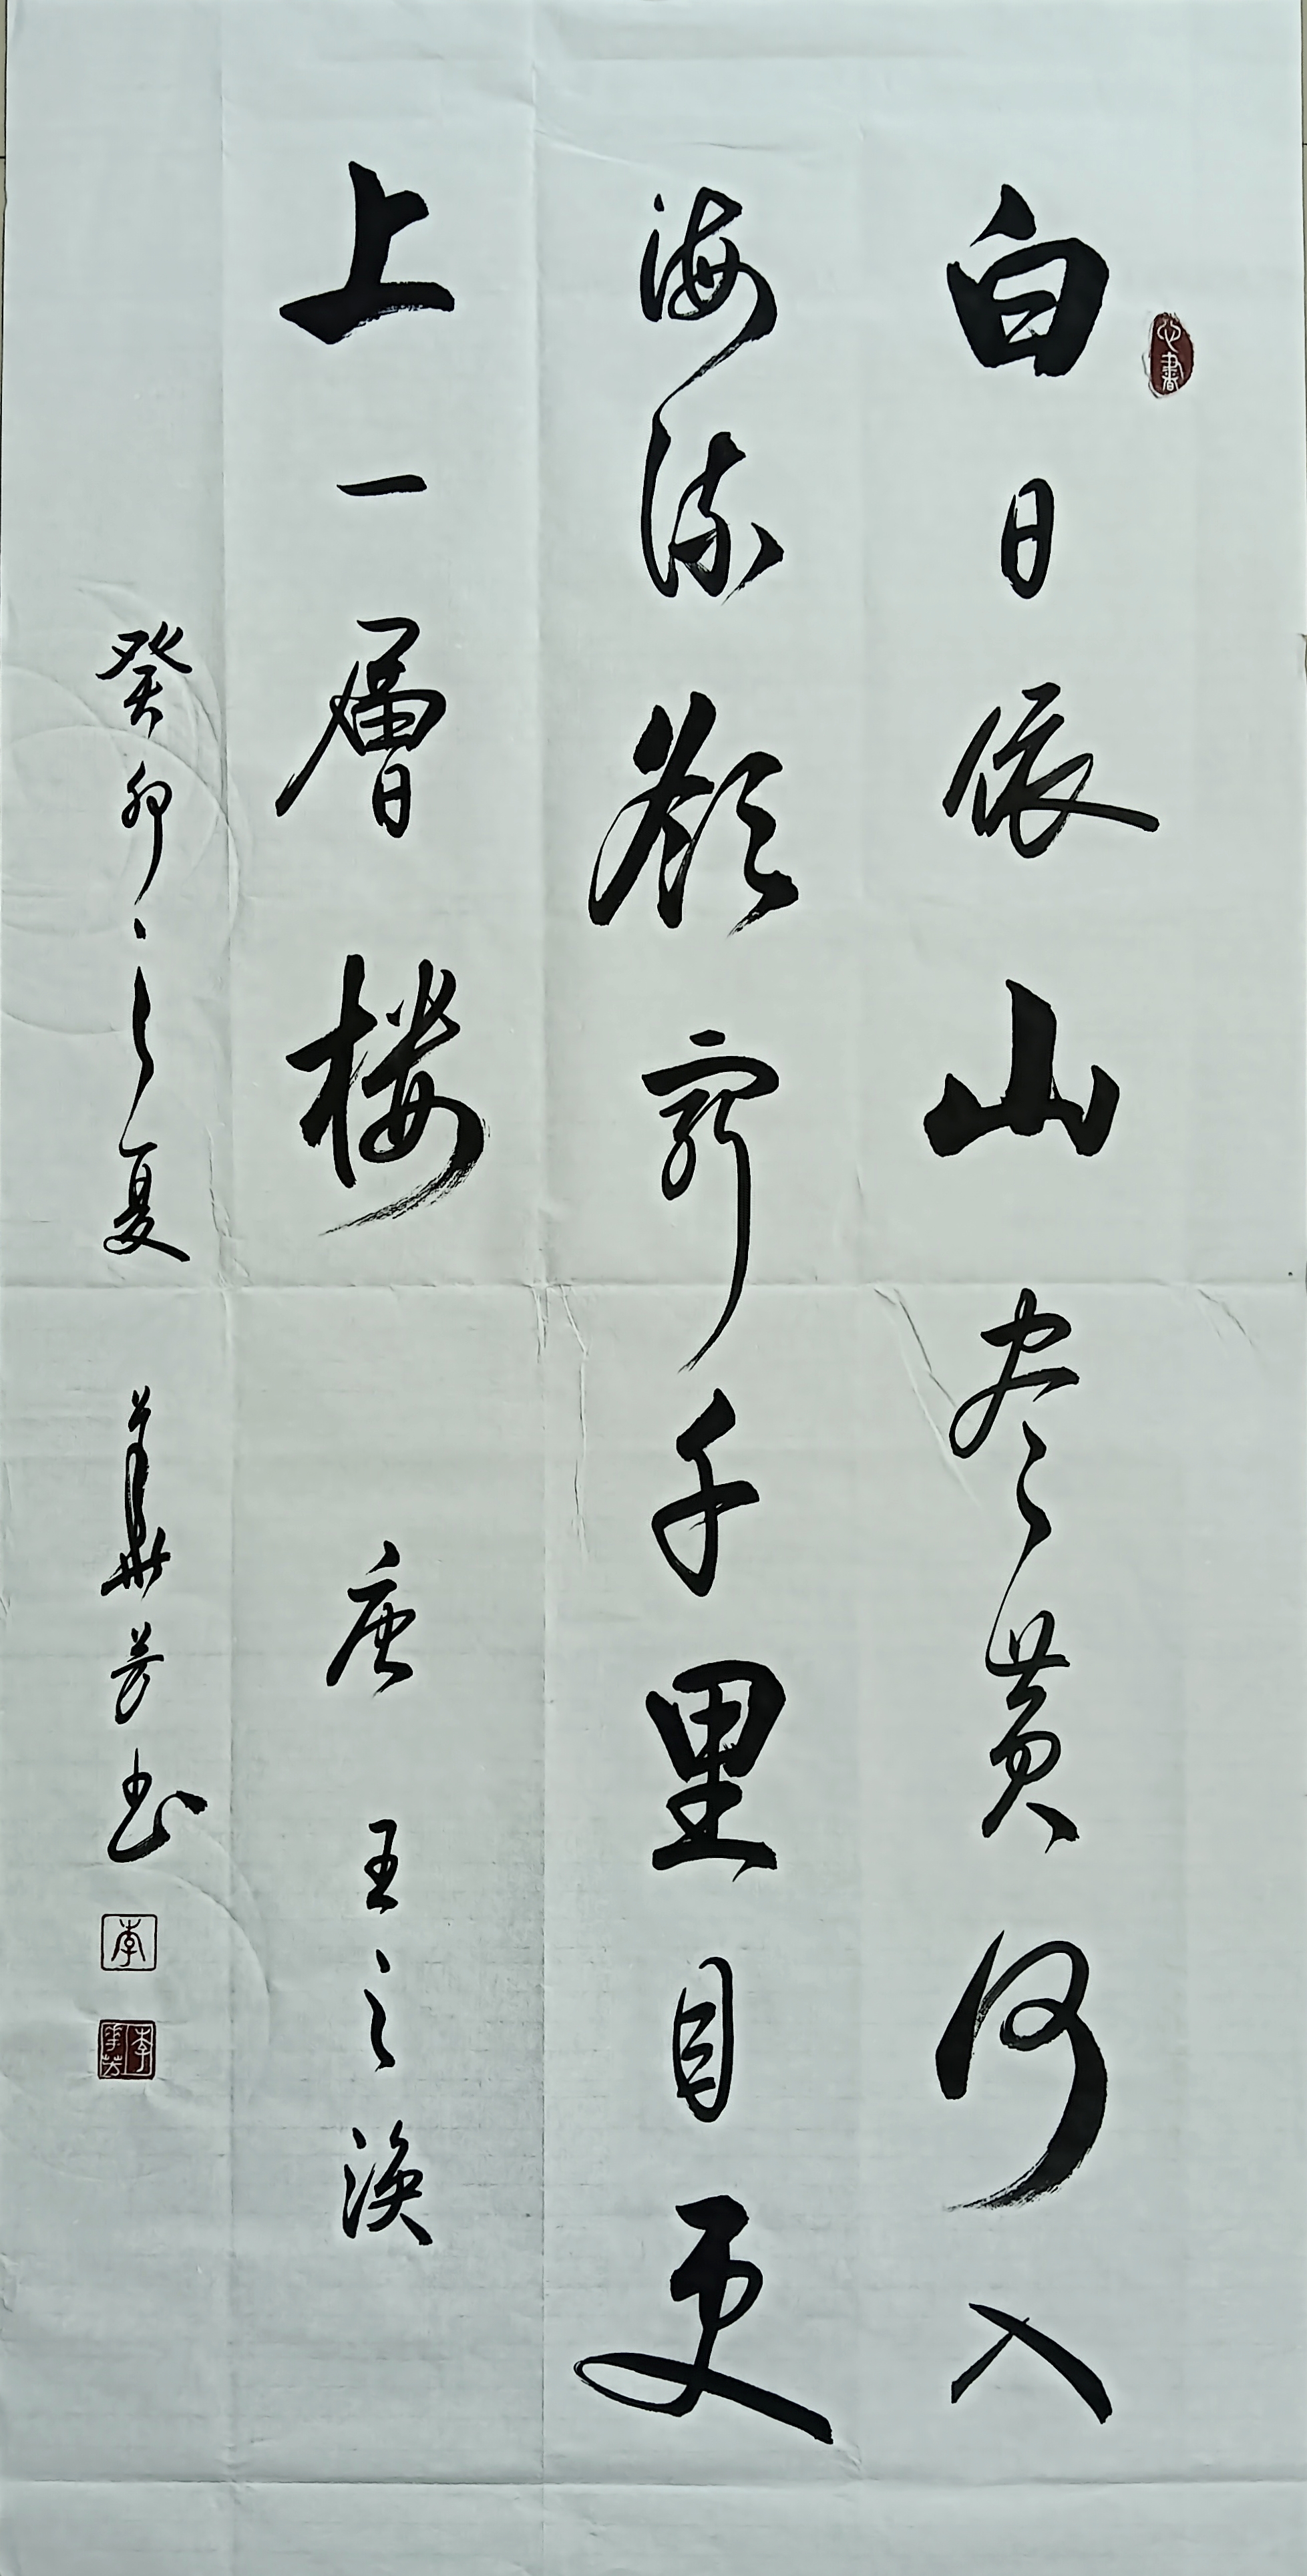 白日依山尽黄河入
海流欲穷千里目更
上一層楼 唐 王之涣
癸卯之夏 華芳书
心書
李
李華芳